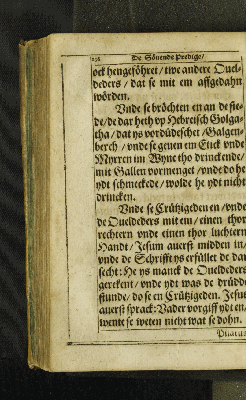 De Sövende Predige/
ock hengeföhret / twe andere Ouel-
deders / dat se mit em affgedahn
wörden.
Vnde se bröchten en an de ste-
de / de dar heth vp Hebreisch Golga-
tha / dat ys vordüdeschet / Galgen-
berch / vnde se geuen em Etick vnde
Myrren im Wyne tho drinckende /
mit Gallen vormenget / vnde do he
ydt schmeckede / wolde he ydt nicht
drincken.
Vnde se Crützigeden en / vnde
de Oueldeders mit em / einen thor
rechtern vnde einen thor luchtern
Handt / Jesum auerst midden in /
vnde de Schrifft ys erfüllet de dar
secht: He ys manck de Oueldeders
gerekent / vnde ydt was de drüdde
stunde / do se en Crützigeden. Jesus
auerst sprack: Vader vorgiff ydt en /
wente se weten nicht wat se dohn.